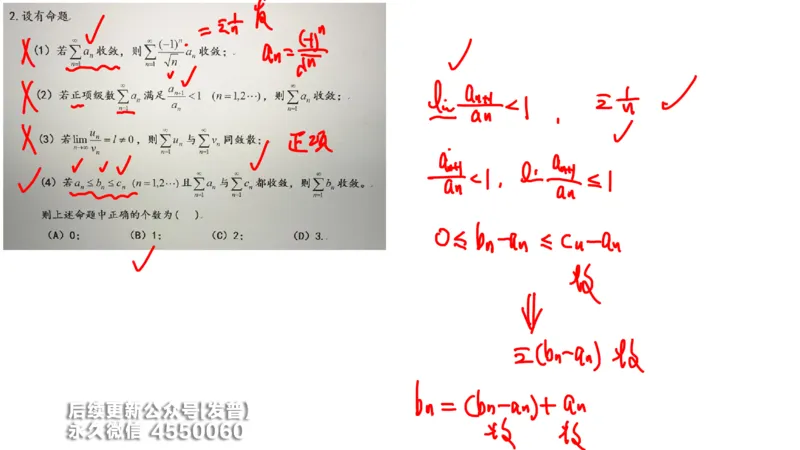 2.设有命题
(1) 若 $\sum_{n=1}^{\infty} a_n$ 收敛，则 $\sum_{n=1}^{\infty} \frac{(-1)^n}{\sqrt{n}} a_n$ 收敛；
= Σ 1/n 发
a_n = (-1)^n/√n
(2) 若正项级数 $\sum_{n=1}^{\infty} a_n$ 满足 $\frac{a_{n+1}}{a_n}<1$ (n=1,2⋯)，则 $\sum_{n=1}^{\infty} a_n$ 收敛；
(3) 若 $\lim_{n\to\infty} \frac{u_n}{v_n}=l\neq 0$，则 $\sum_{n=1}^{\infty} u_n$ 与 $\sum_{n=1}^{\infty} v_n$ 同敛散；
正项
(4) 若 $a_n \le b_n \le c_n$ (n=1,2⋯) 且 $\sum_{n=1}^{\infty} a_n$ 与 $\sum_{n=1}^{\infty} c_n$ 都收敛，则 $\sum_{n=1}^{\infty} b_n$ 收敛。
则上述命题中正确的个数为( ).
(A) 0; (B) 1; (C) 2; (D) 3.
lim a_{n+1}/a_n < 1 , Σ 1/n
a_{n+1}/a_n < 1, a_{n+1}/a_n ≤ 1
0 ≤ b_n - a_n ≤ c_n - a_n
收
⇓
Σ(b_n - a_n) 收
b_n = (b_n - a_n) + a_n
收 收
后续更新公众号(发普)
永久微信 4550060